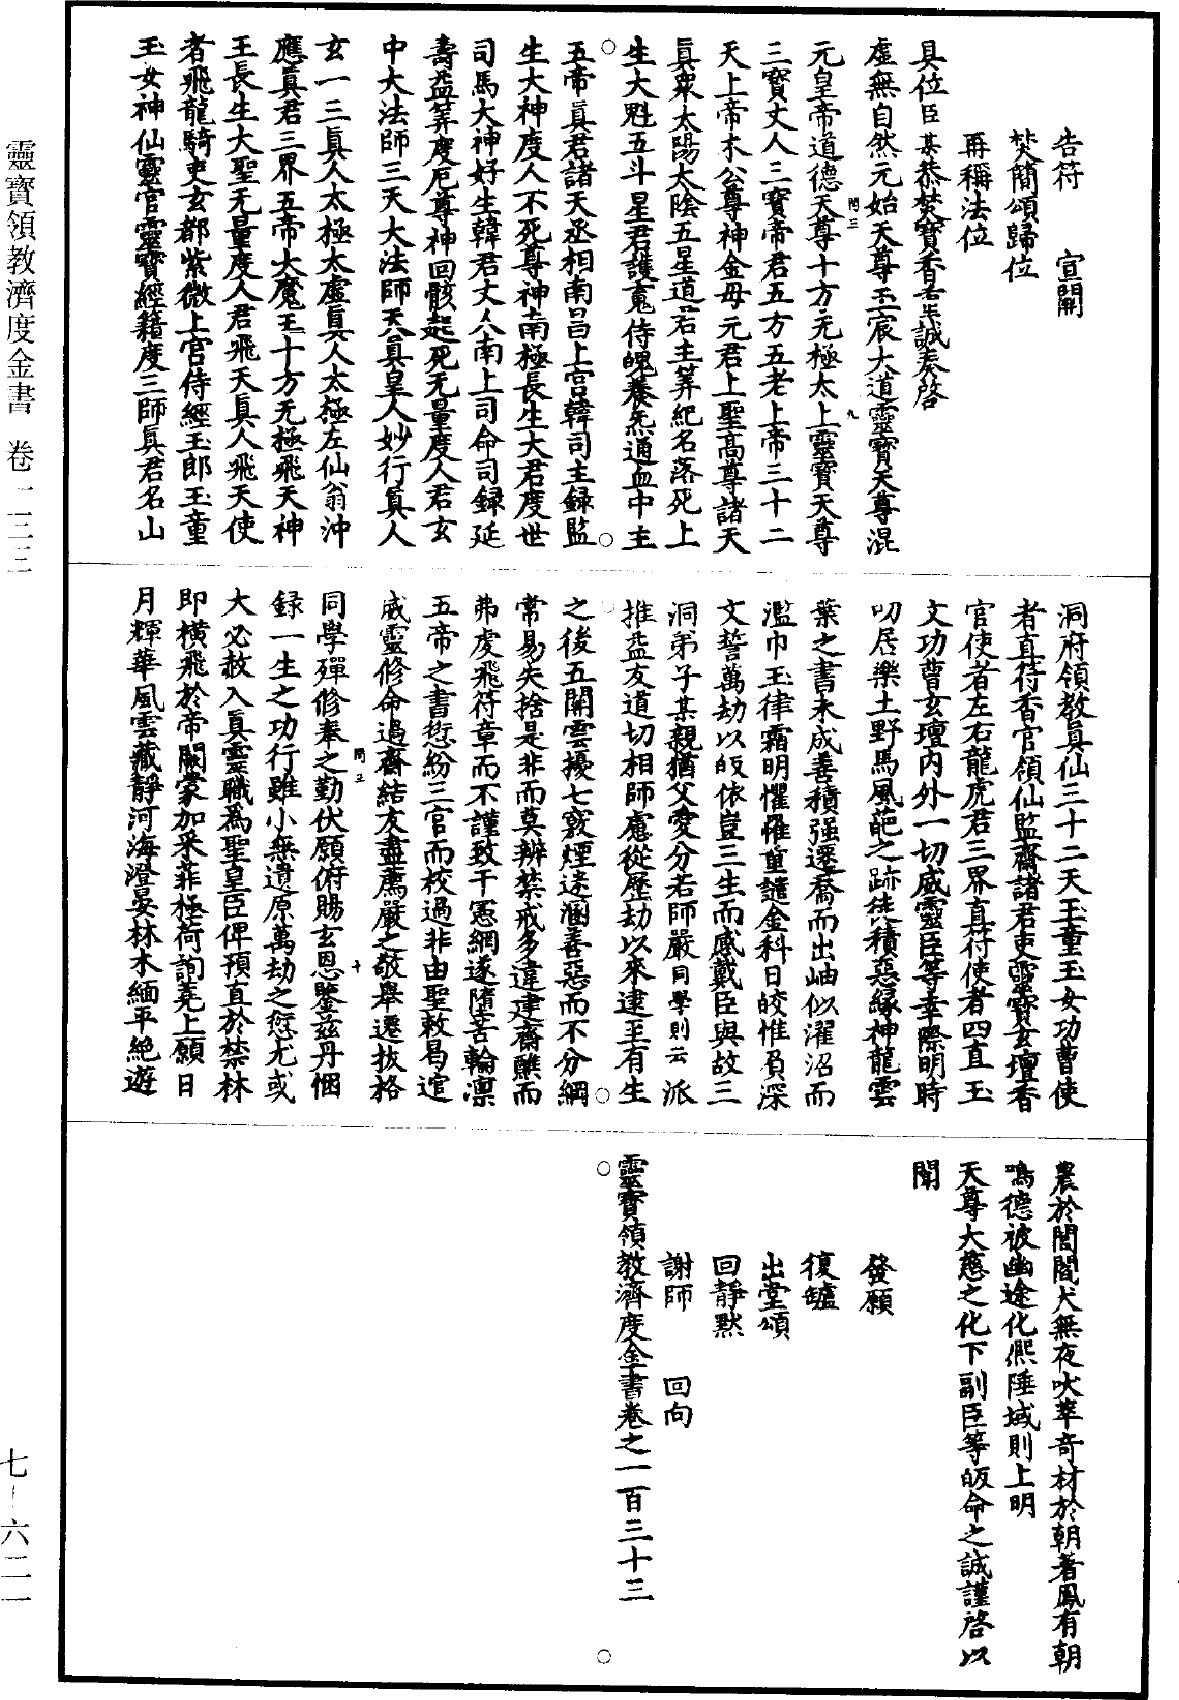 告符　宣關
焚簡頌歸位
再稱法位
具位臣某恭焚寶香百拜誠奏啓
虛無自然元始天尊玉宸大道靈寶天尊混
元皇帝道德天尊十方无極太上靈寶天尊
三寶丈人三寶帝君五方五老上帝三十二
天上帝木公尊神金母元君上聖高尊諸天
眞衆太陽太陰五星道君主筭紀名落死上
生大魁五斗星君護䰟侍魄養炁通血中主
五帝眞君諸天丞相南昌上宮韓司主録監
生大神度人不死尊神南極長生大君度世
司馬大神好生韓君丈人南上司命司録延
壽益筭度厄尊神回骸起死无量度人君玄
中大法師三天大法師天眞皇人妙行眞人
玄一三眞人太極太虛眞人太極左仙翁沖
應眞君三界五帝大魔王十方无極飛天神
王長生大聖无量度人君飛天眞人飛天使
者飛龍騎吏玄都紫微上宮侍經玉郎玉童
玉女神仙靈官靈寶經籍度三師眞君名山
洞府領教眞仙三十二天玉童玉女功曹使
者直符香官領仙監齋諸君吏靈寶玄壇香
官使者左右龍虎君三界直符使者四直玉
文功曹玄壇内外一切威靈臣等幸際明時
叨居樂土野馬風葩之跡徒積惡緣神龍雲
葉之書未成善積强遷喬而出岫似濯沼而
濫巾玉律霜明懼罹重譴金科日皎惟負深
文誓萬劫以皈依豈三生而感戴臣與故三
洞弟子某親猶父愛分若師嚴同學則云派
推益友道切相師處從歷劫以來逮至有生
之後五關雲擾七竅煙迷溷善惡而不分綱
常易失捨是非而莫辨禁戒多違建齋醮而
弗虔飛符章而不謹致干憲綱遂隋苦輪凛
五帝之書愆紛三官而校過非由聖敕曷逭
威靈修命過齋結友盡薦嚴之敬舉遷拔格
同學殫修奉之勤伏願俯賜玄恩鑒兹丹悃
録一生之功行雖小無遺原萬劫之愆尤或
大必赦入眞靈職爲聖皇臣俾預直於禁林
即橫飛於帝闕蒙加采菲極荷詢蕘上願日
月輝華風雲藏靜河海澄晏林木緬平絶遊
農於閭閻犬無夜吠萃奇材於朝著鳳有朝
鳴德被幽途化熈陲域則上明
天尊大慈之化下副臣等皈命之誠謹啓以
聞
發願
復爐
出堂頌
回靜默
謝師　回向
靈寶領教濟度金書卷之一百三十三
靈寶領教濟度金書　卷一三三
七—六二一